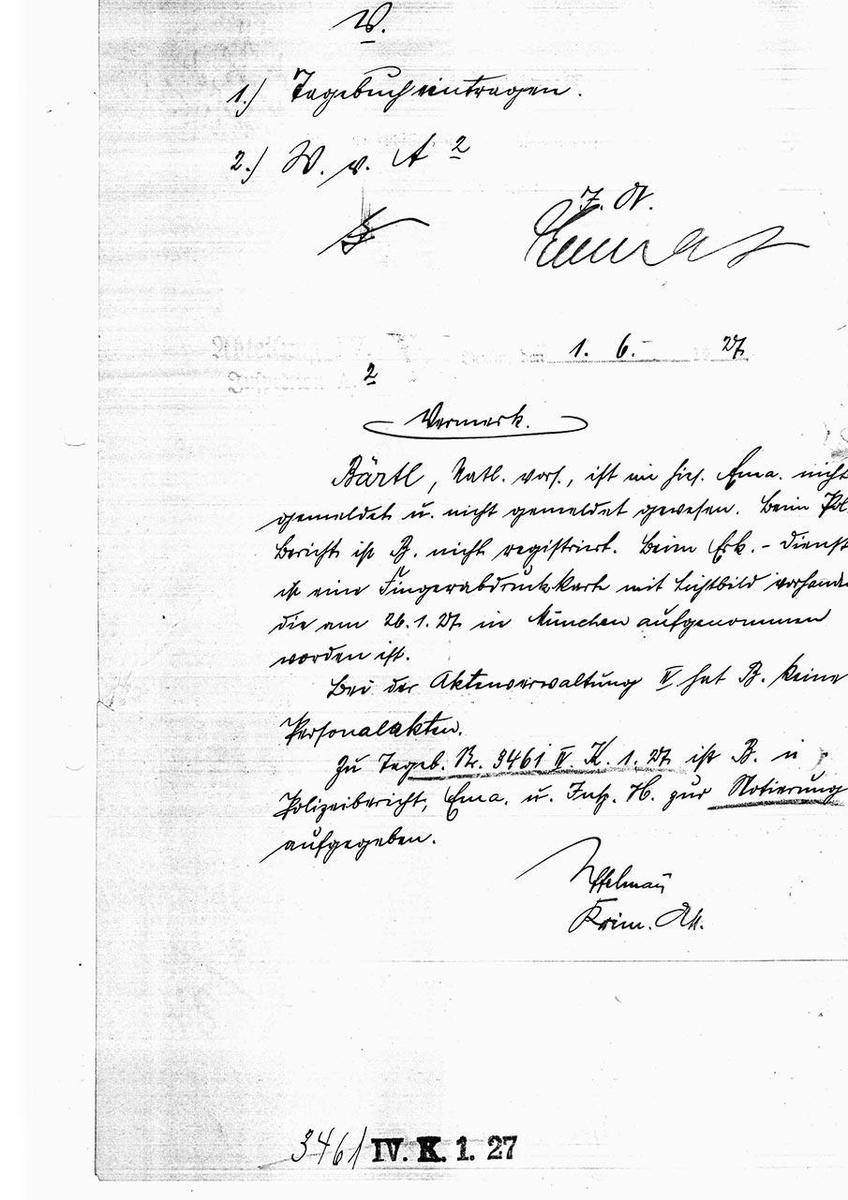 V.
1.) Tagebuch eintragen.
2.) W. v. A 2
J. A.
Abteilung IV. Berlin, den 1. 6. 1927
Inspektion A
2
Vermerk.
Bärtl, Natl. vors., ist im hies. Ema. nicht
gemeldet u. nicht gemeldet gewesen. Beim Pol.
Bericht ist B. nicht registriert. Beim Erk.-Dienst
ist eine Fingerabdruckkarte mit Lichtbild vorhanden
die am 26.1.27. in München aufgenommen
worden ist.
Bei der Aktenverwaltung IV hat B. keine
Personalakten.
Zu Tageb. Nr. 3461 IV. K. 1. 27. ist B. i
Polizeibericht, Ema. u. Insp. H. zur Notierung
aufgegeben.
Krim. Ass.
3461 IV. K. 1. 27